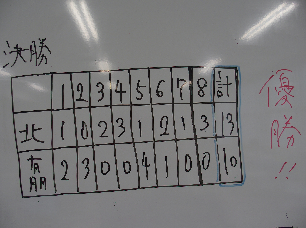 決勝
1 2 3 4 5 6 7 8 計
北 1 0 2 3 1 2 1 3 13
2 3 0 0 4 1 0 0 10
優勝!!